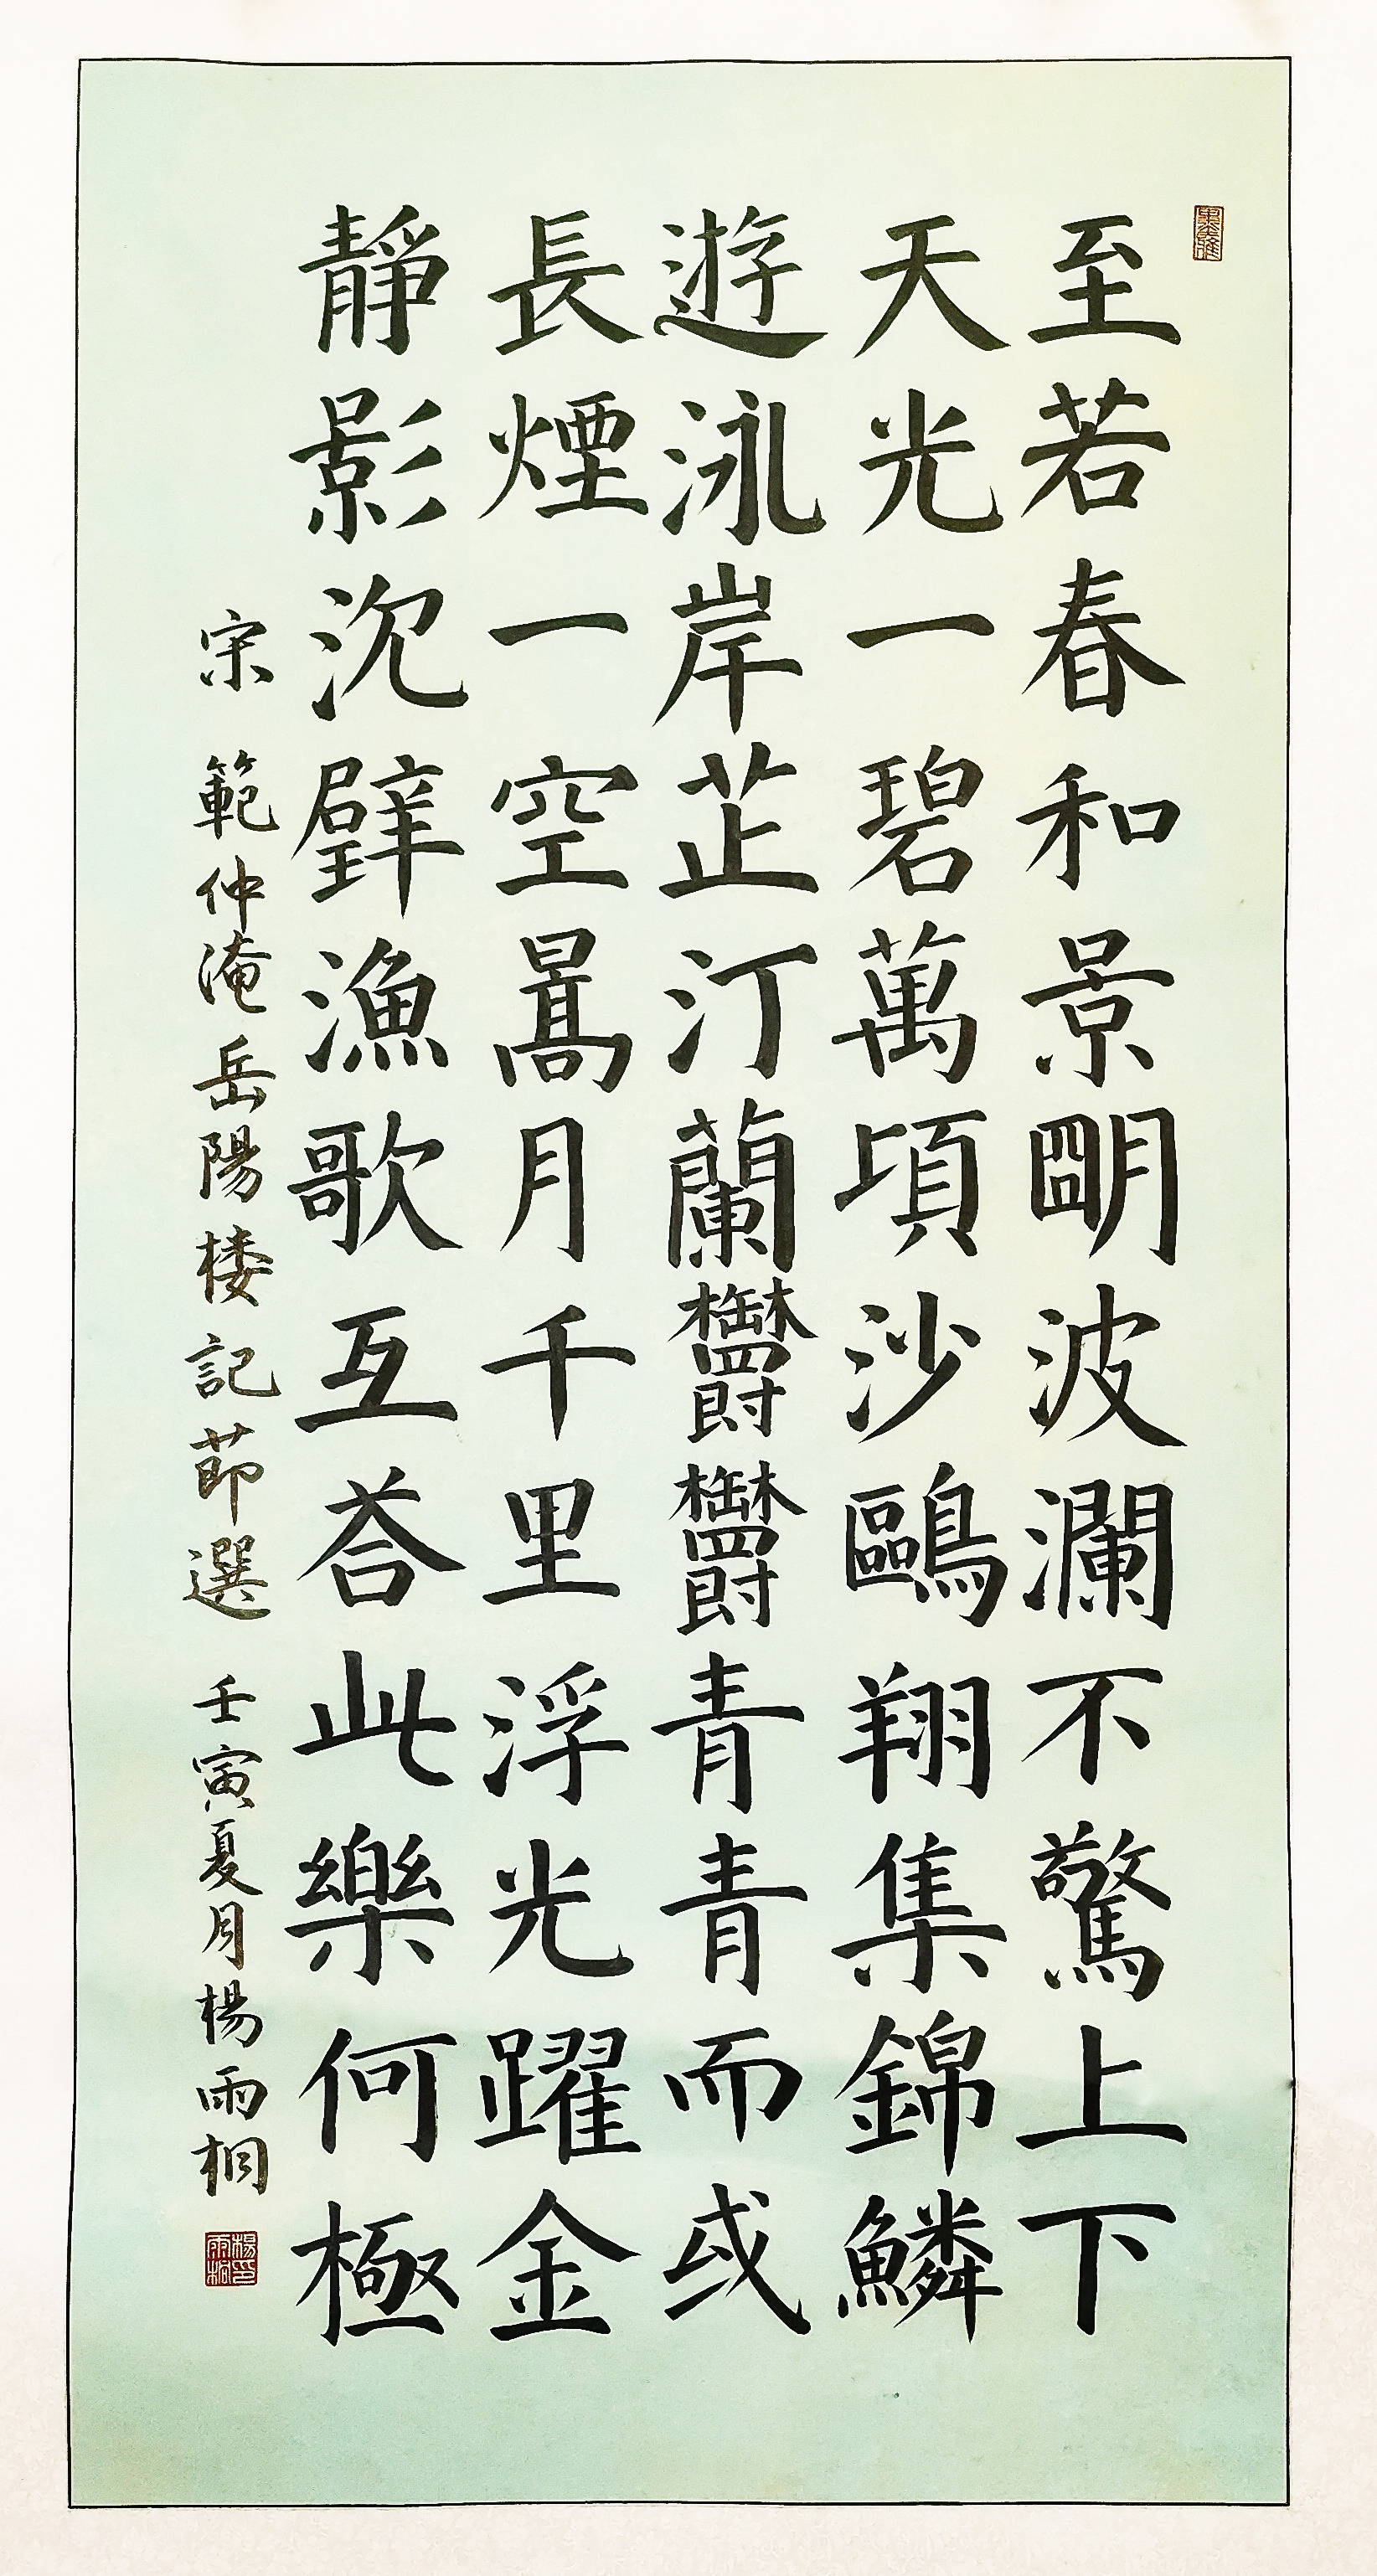 至若春和景朙波瀾不驚上下
天光一碧萬頃沙鷗翔集錦鱗
遊泳岸芷汀蘭欝欝青青而或
長煙一空暠月千里浮光躍金
靜影沉璧漁歌互荅此樂何極
宋 範仲淹岳陽楼記莭選 壬寅夏月楊雨桐
楊印雨桐